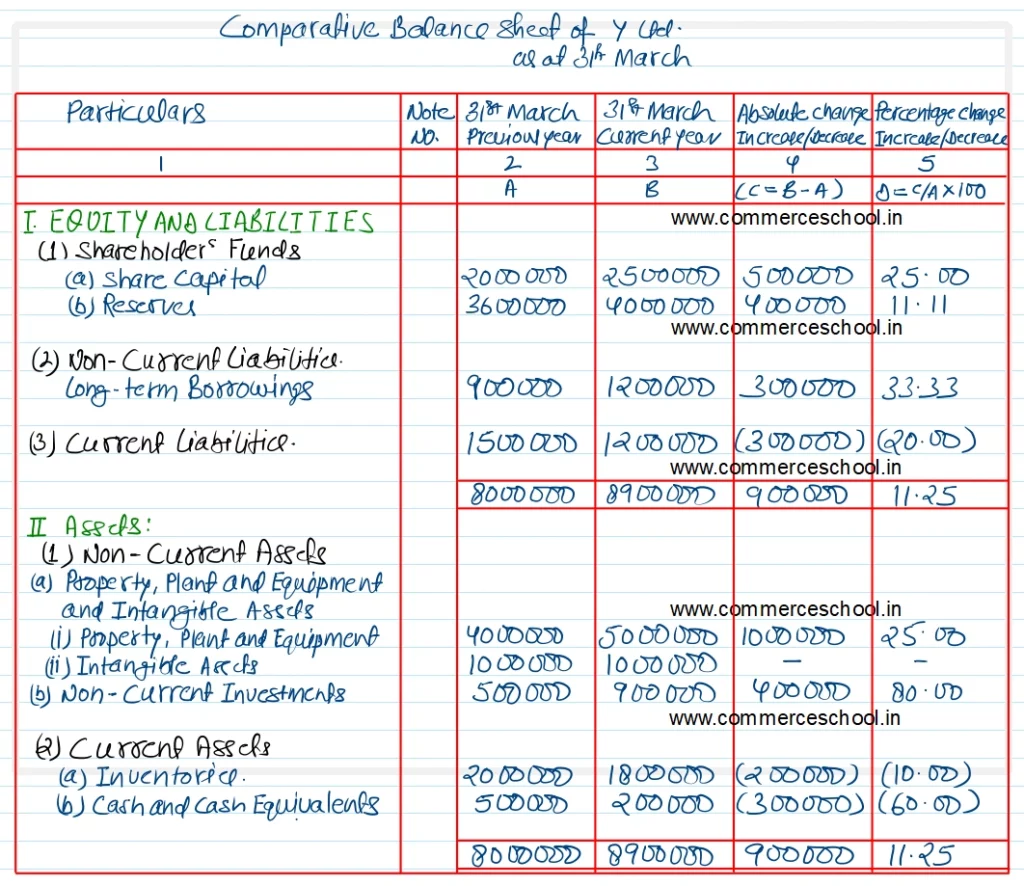 Comparative Balance Sheet of Y Ltd.
as at 31st March
Particulars Note No. 31st March Previous year 31st March Current year Absolute change Increase/Decrease Percentage change Increase/Decrease
1 2 3 4 5
A B (C=B-A) D=C/A×100
I. EQUITY AND LIABILITIES www.commerceschool.in
(1) Shareholders Funds
(a) Share Capital 2000000 2500000 500000 25.00
(b) Reserves 3600000 4000000 400000 11.11
www.commerceschool.in
(2) Non-Current Liabilities.
Long-term Borrowings 900000 1200000 300000 33.33
(3) Current Liabilities. 1500000 1200000 (300000) (20.00)
www.commerceschool.in
8000000 8900000 900000 11.25
II Assets:
(1) Non-Current Assets
(a) Property, Plant and Equipment
and Intangible Assets www.commerceschool.in
(i) Property, Plant and Equipment 4000000 5000000 1000000 25.00
(ii) Intangible Assets 1000000 1000000 – –
(b) Non-Current Investments 500000 900000 400000 80.00
www.commerceschool.in
(2) Current Assets
(a) Inventories. 2000000 1800000 (200000) (10.00)
(b) Cash and Cash Equivalents 500000 200000 (300000) (60.00)
8000000 8900000 900000 11.25